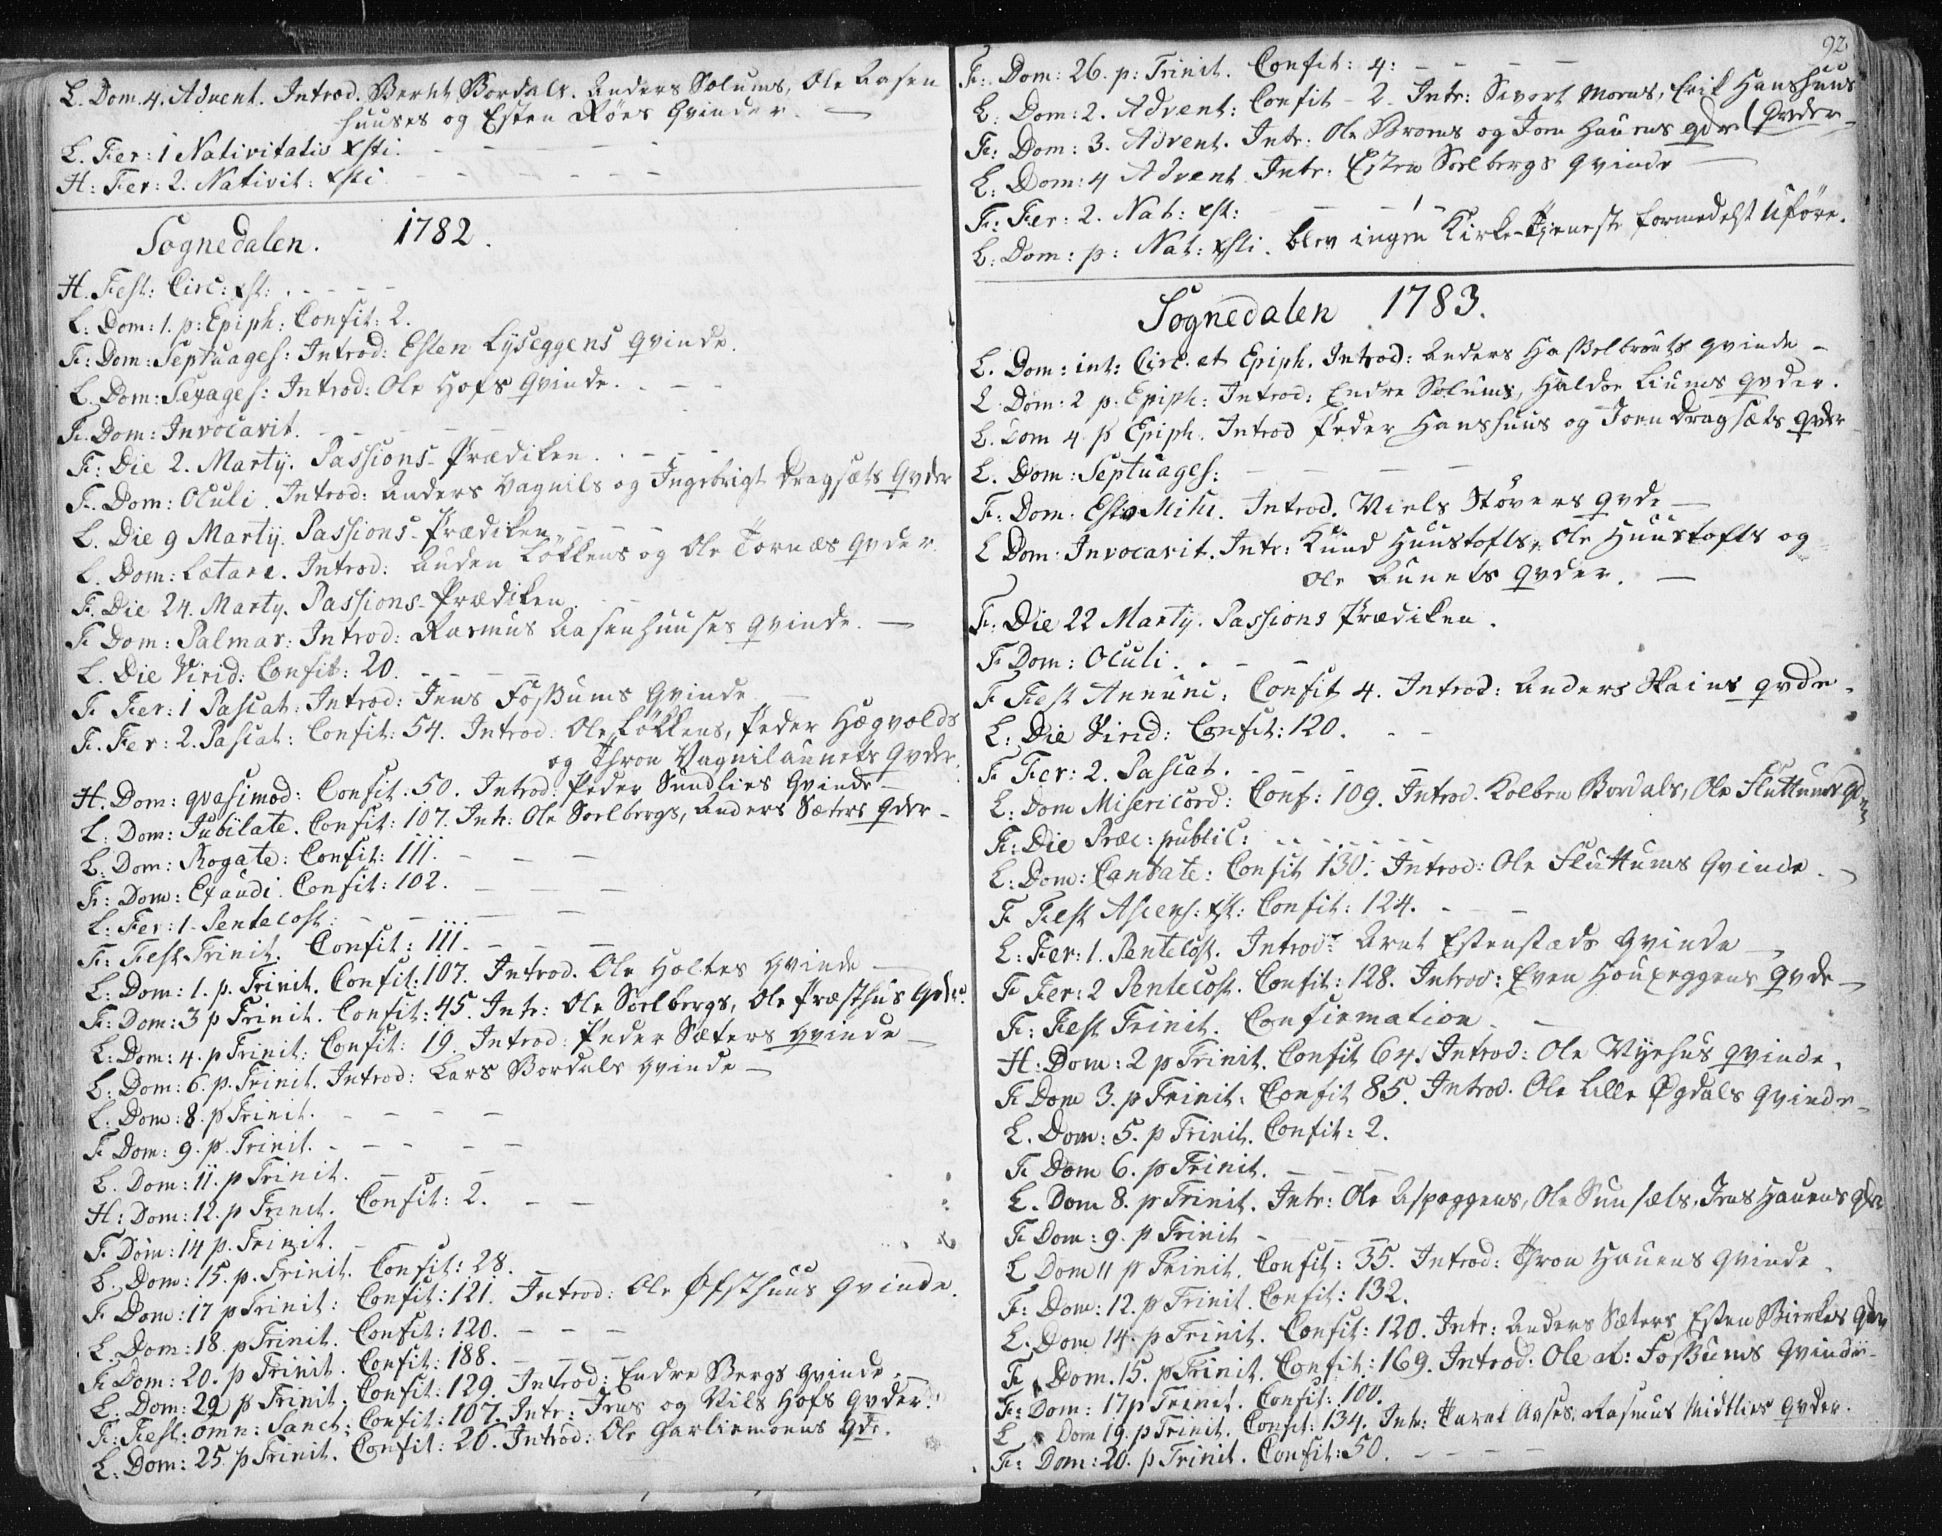 L. Dom. 4. Advent. Introd. Bernt Bordals. Anders Solums, Ole Aasen
huuses og Esten Röes Qvinder. —
L. Fer: 1 Nativitatis Xsti.
H: Fer: 2. Nativit: Xsti
Sognedalen. 1782.
H. Fest: Circ: Xst:
L: Dom: 1. p: Epiph: Confit: 2.
F: Dom: Septuages: Introd: Esten Lyseggens Qvinde.
L. Dom: Sexages: Introd: Ole Hofs Qvinde.
F. Dom: Invocavit.
F: Die 2. Martij. Passions-Prædiken.
F. Dom: Oculi. Introd: Anders Vagnils og Ingebrigt Dragsæts Qvder
L. Die 9 Martij. Passions-Prædiken
L. Dom: Lætare. Introd: Auden Løkkens og Ole Tornæs Qvder.
F. Die 24. Martij. Passions-Prædiken.
F Dom: Palmar: Introd: Rasmus Aasenhuuses Qvinde. —
L. Die Virid: Confit: 20.
F Fer: 1 Pascat: Introd: Jens Foßums Qvinde
F. Fer: 2. Pascat: Confit: 54. Introd: Ole Løkkens, Peder Hægvolds
og Thron Vagnilaunets Qvder.
H. Dom: qvasimod: Confit. 50. Introd: Peder Sundlies Qvinde —
L: Dom: Jubilate. Confit: 107. Intr: Ole Soelbergs, Anders Sæters Qder —
L. Dom: Rogate: Confit: 111.
F: Dom: Exaudi. Confit: 102.
L: Fer: 1. Pentecost:
F: Fest Trinit. Confit: 111.
L: Dom: 1. p. Trinit. Confit: 107. Introd. Ole Holtes Qvinde —
F: Dom: 3 p Trinit. Confit: 45. Intr: Ole Soelbergs, Ole Præsthus Qvder.
L: Dom: 4. p Trinit: Confit: 19. Introd: Peder Sæters Qvinde —
L: Dom: 6. p. Trinit. Introd: Lars Bordals Qvinde —
L. Dom: 8. p Trinit.
F Dom: 9. p. Trinit.
L. Dom: 11. p Trinit.
H: Dom: 12. p Trinit. Confit: 2.
F Dom: 14 p. Trinit.
L. Dom: 15. p. Trinit. Confit: 28.
F Dom: 17 p Trinit: Confit: 121. Introd: Ole Ofsthuus Qvinde.
L. Dom: 18. p Trinit. Confit: 120.
F Dom: 20. p Trinit. Confit: 188.
L. Dom: 22 p Trinit. Confit: 129. Introd: Endre Bergs Qvinde.
F: Fest: omn: Sanct: Confit: 107. Intr: Jens og Nils Hofs Qvder.
L: Dom: 25. p Trinit. Confit: 26. Introd: Ole Garliemoens Qde.
92
F: Dom: 26. p: Trinit. Confit: 4:
L: Dom: 2. Advent: Confit - 2. Intr: Sivert Moens, Erik Hanshuus
F: Dom: 3. Advent. Intr: Ole Broens og Joen Hauens Qdr (Qvder —
L: Dom: 4 Advent Intr: Esten Soelbergs Qvinde —
F: Fer: 2. Nat: Xst:
L: Dom: p: Nat: Xsti. blev ingen Kirke-Tjeneste formedelst Uføre.
Sognedalen 1783.
L. Dom: int: Circ. et Epiph. Introd: Anders Haßelbrouts Qvinde —
L. Dom: 2 p. Epiph: Introd: Endre Solums, Haldor Liums Qvder.
L. Dom 4 p Epiph. Introd Peder Hanshuus og Joen Dragsæts Qvder
L. Dom: Septuages:
F: Dom. Esto Mihi. Introd. Niels Støvers Qvde —
L Dom: Invocavit. Intr: Knud Huustofts, Ole Huustofts og
Ole Aunets Qvder. —
F: Die 22 Martij. Passions Prædiken.
F Dom: Oculi.
F Fest Annunc: Confit 4. Introd: Anders Skains Qvde.
L: Die Virid: Confit: 120.
F Fer: 2. Pascat.
L: Dom Misericord: Conf: 109. Introd. Kolben Bordals, Ole Fluttums Qvder
F: Die Præc: public:
L: Dom: Cantate: Confit 130. Introd: Ole Fluttums Qvinde.
F Fest Ascens: Xst: Confit: 124.
L: Fer: 1. Pentecost. Introd: Arnt Estenstads Qvinde —
F Fer: 2 Pentecost. Confit: 128. Introd: Even Houxeggens Qvde —
F: Fest Trinit. Confirmation
H: Dom: 2 p Trinit. Confit 64. Introd: Ole Vyehus Qvinde.
F Dom 3. p Trinit: Confit 85. Introd. Ole Lille Øgdals Qvinde.
L. Dom: 5. p Trinit. Confit: 2.
F Dom 6. p Trinit.
L. Dom 8. p Trinit. Intr: Ole Aspeggens, Ole Sunsæts, Jens Hauens Qder
F Dom: 9. p Trinit
L Dom 11 p Trinit. Confit: 35. Introd: Thron Hauens Qvinde.
F: Dom: 12. p Trinit. Confit: 132.
L. Dom 14. p Trinit. Confit: 120. Intr: Anders Sæters Esten Bierkes Qder
F. Dom. 15. p Trinit. Confit: 169. Introd: Ole at: Foßums Qvinde —
F: Dom: 17 p Trinit. Confit: 100.
L Dom 19. p Trinit. Confit: 134. Intr: Aases, Rasmus Midtlies Qvder.
F: Dom: 20. p Trinit. Confit: 50.